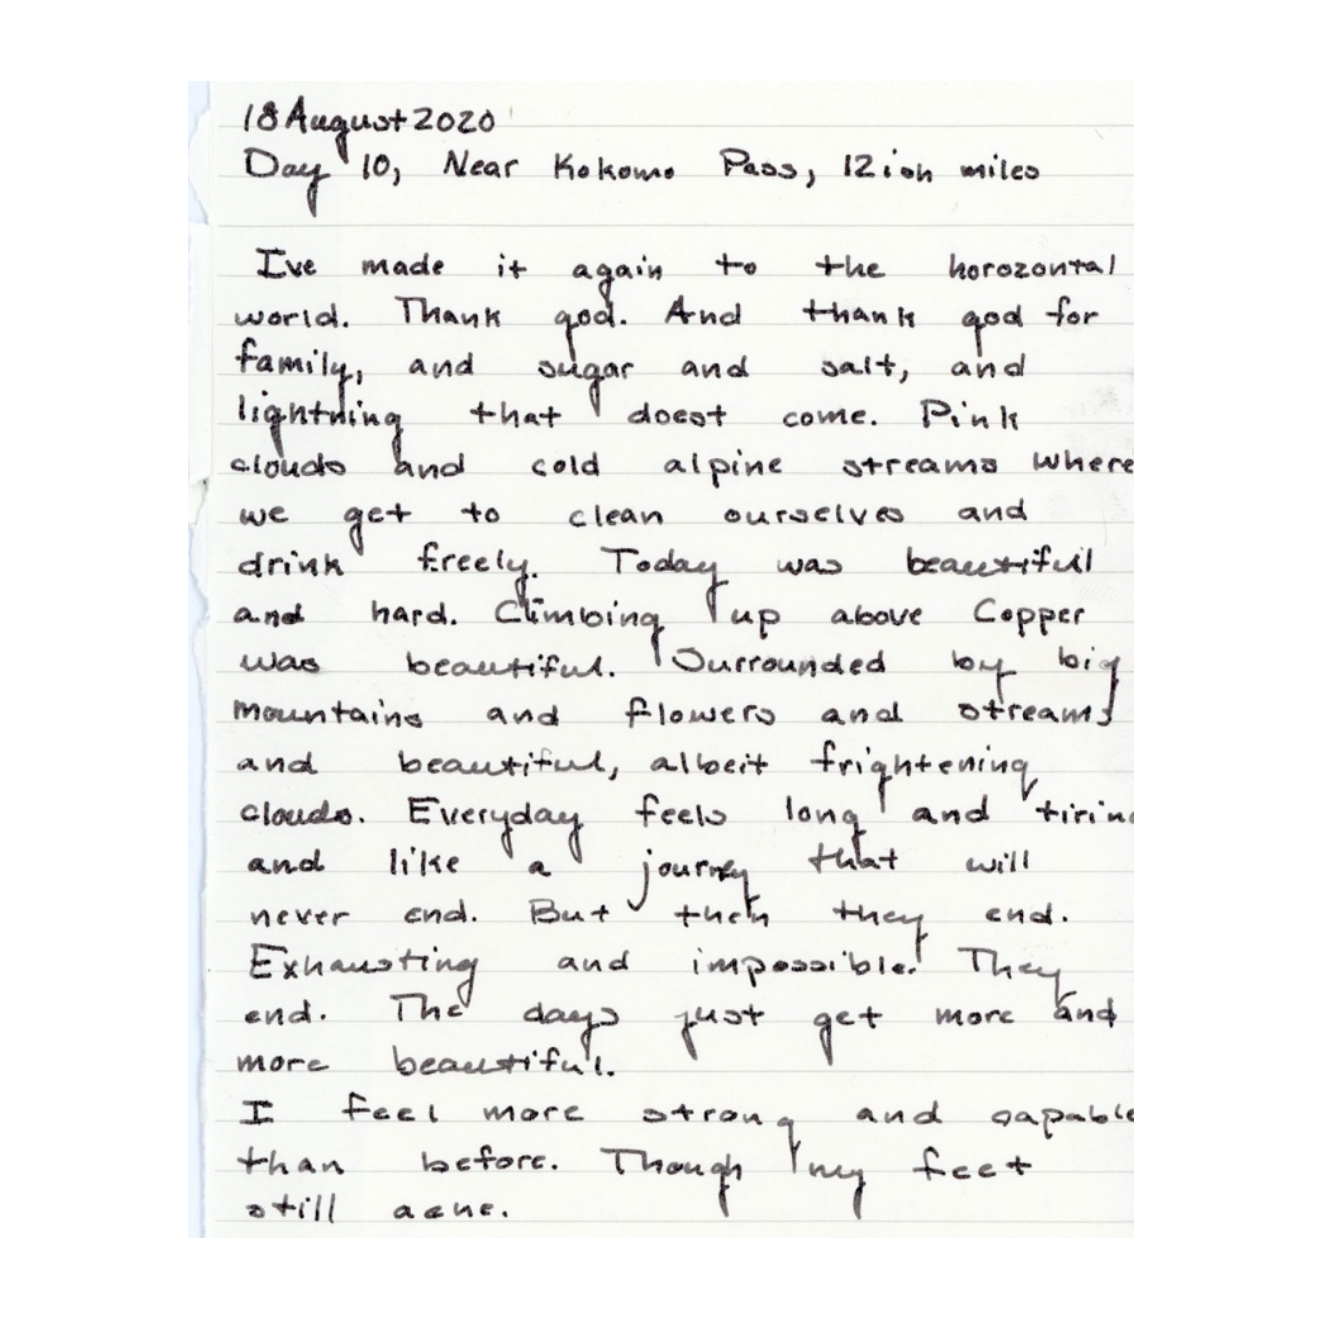 18 August 2020
Day 10, Near Kokomo Pass, 12ish miles
Ive made it again to the horozontal
world. Thank god. And thank god for
family, and sugar and salt, and
lightning that doest come. Pink
clouds and cold alpine streams where
we get to clean ourselves and
drink freely. Today was beautiful
and hard. Climbing up above Copper
was beautiful. Surrounded by big
mountains and flowers and streams
and beautiful, albeit frightening
clouds. Everyday feels long and tirin
and like a journey that will
never end. But then they end.
Exhausting and impossible. They
end. The days just get more and
more beautiful.
I feel more strong and capable
than before. Though my feet
still ache.